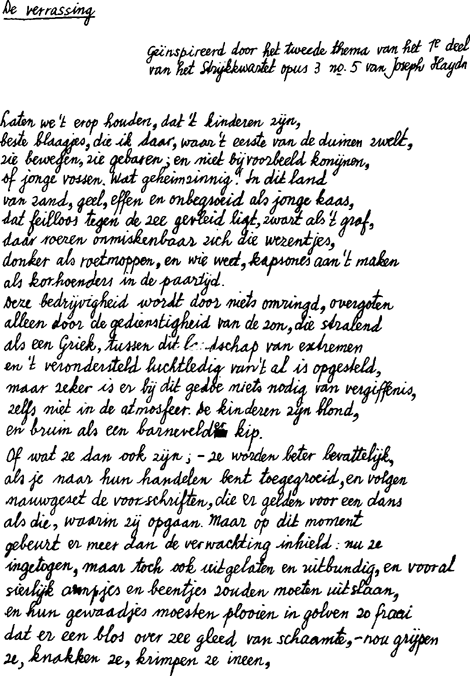 De verrassing
Geïnspireerd door het tweede thema van het 1e deel
van het Strijkkwartet opus 3 no. 5 van Joseph Haydn
Laten we 't erop houden, dat 't kinderen zijn,
beste blaagjes, die ik daar, waar 't eerste van de duinen zwelt,
zie bewegen, zie gebaren; en niet bijvoorbeeld konijnen,
of jonge vossen. Wat geheimzinnig! In dit land
van zand, geel, effen en onbegroeid als jonge kaas,
dat feilloos tegen de zee gevleid ligt, zwart als 't graf,
daar roeren onmiskenbaar zich die wezentjes,
donker als roetmoppen, en wie weet, kapsones aan 't maken
als korhoenders in de paartijd.
Deze bedrijvigheid wordt door niets omringd, overgoten
alleen door de gedienstigheid van de zon, die stralend
als een Griek, tussen dit landschap van extremen
en 't verondersteld luchtledig van 't al is opgesteld,
maar zeker is er bij dit gedoe niets nodig van vergiffenis,
zelfs niet in de atmosfeer. De kinderen zijn blond,
en bruin als een barnevelder kip.
Of wat ze dan ook zijn; – ze worden beter bevattelijk,
als je naar hun handelen bent toegegroeid, en volgen
nauwgezet de voorschriften, die er gelden voor een dans
als die, waarin zij opgaan. Maar op dit moment
gebeurt er meer dan de verwachting inhield: nu ze
ingetogen, maar toch ook uitgelaten en uitbundig, en vooral
sierlijk armpjes en beentjes zouden moeten uitslaan,
en hun gewaadjes moesten plooien in golven zo fraai
dat er een blos over zee gleed van schaamte, – nou grijpen
ze, knakken ze, krimpen ze ineen,